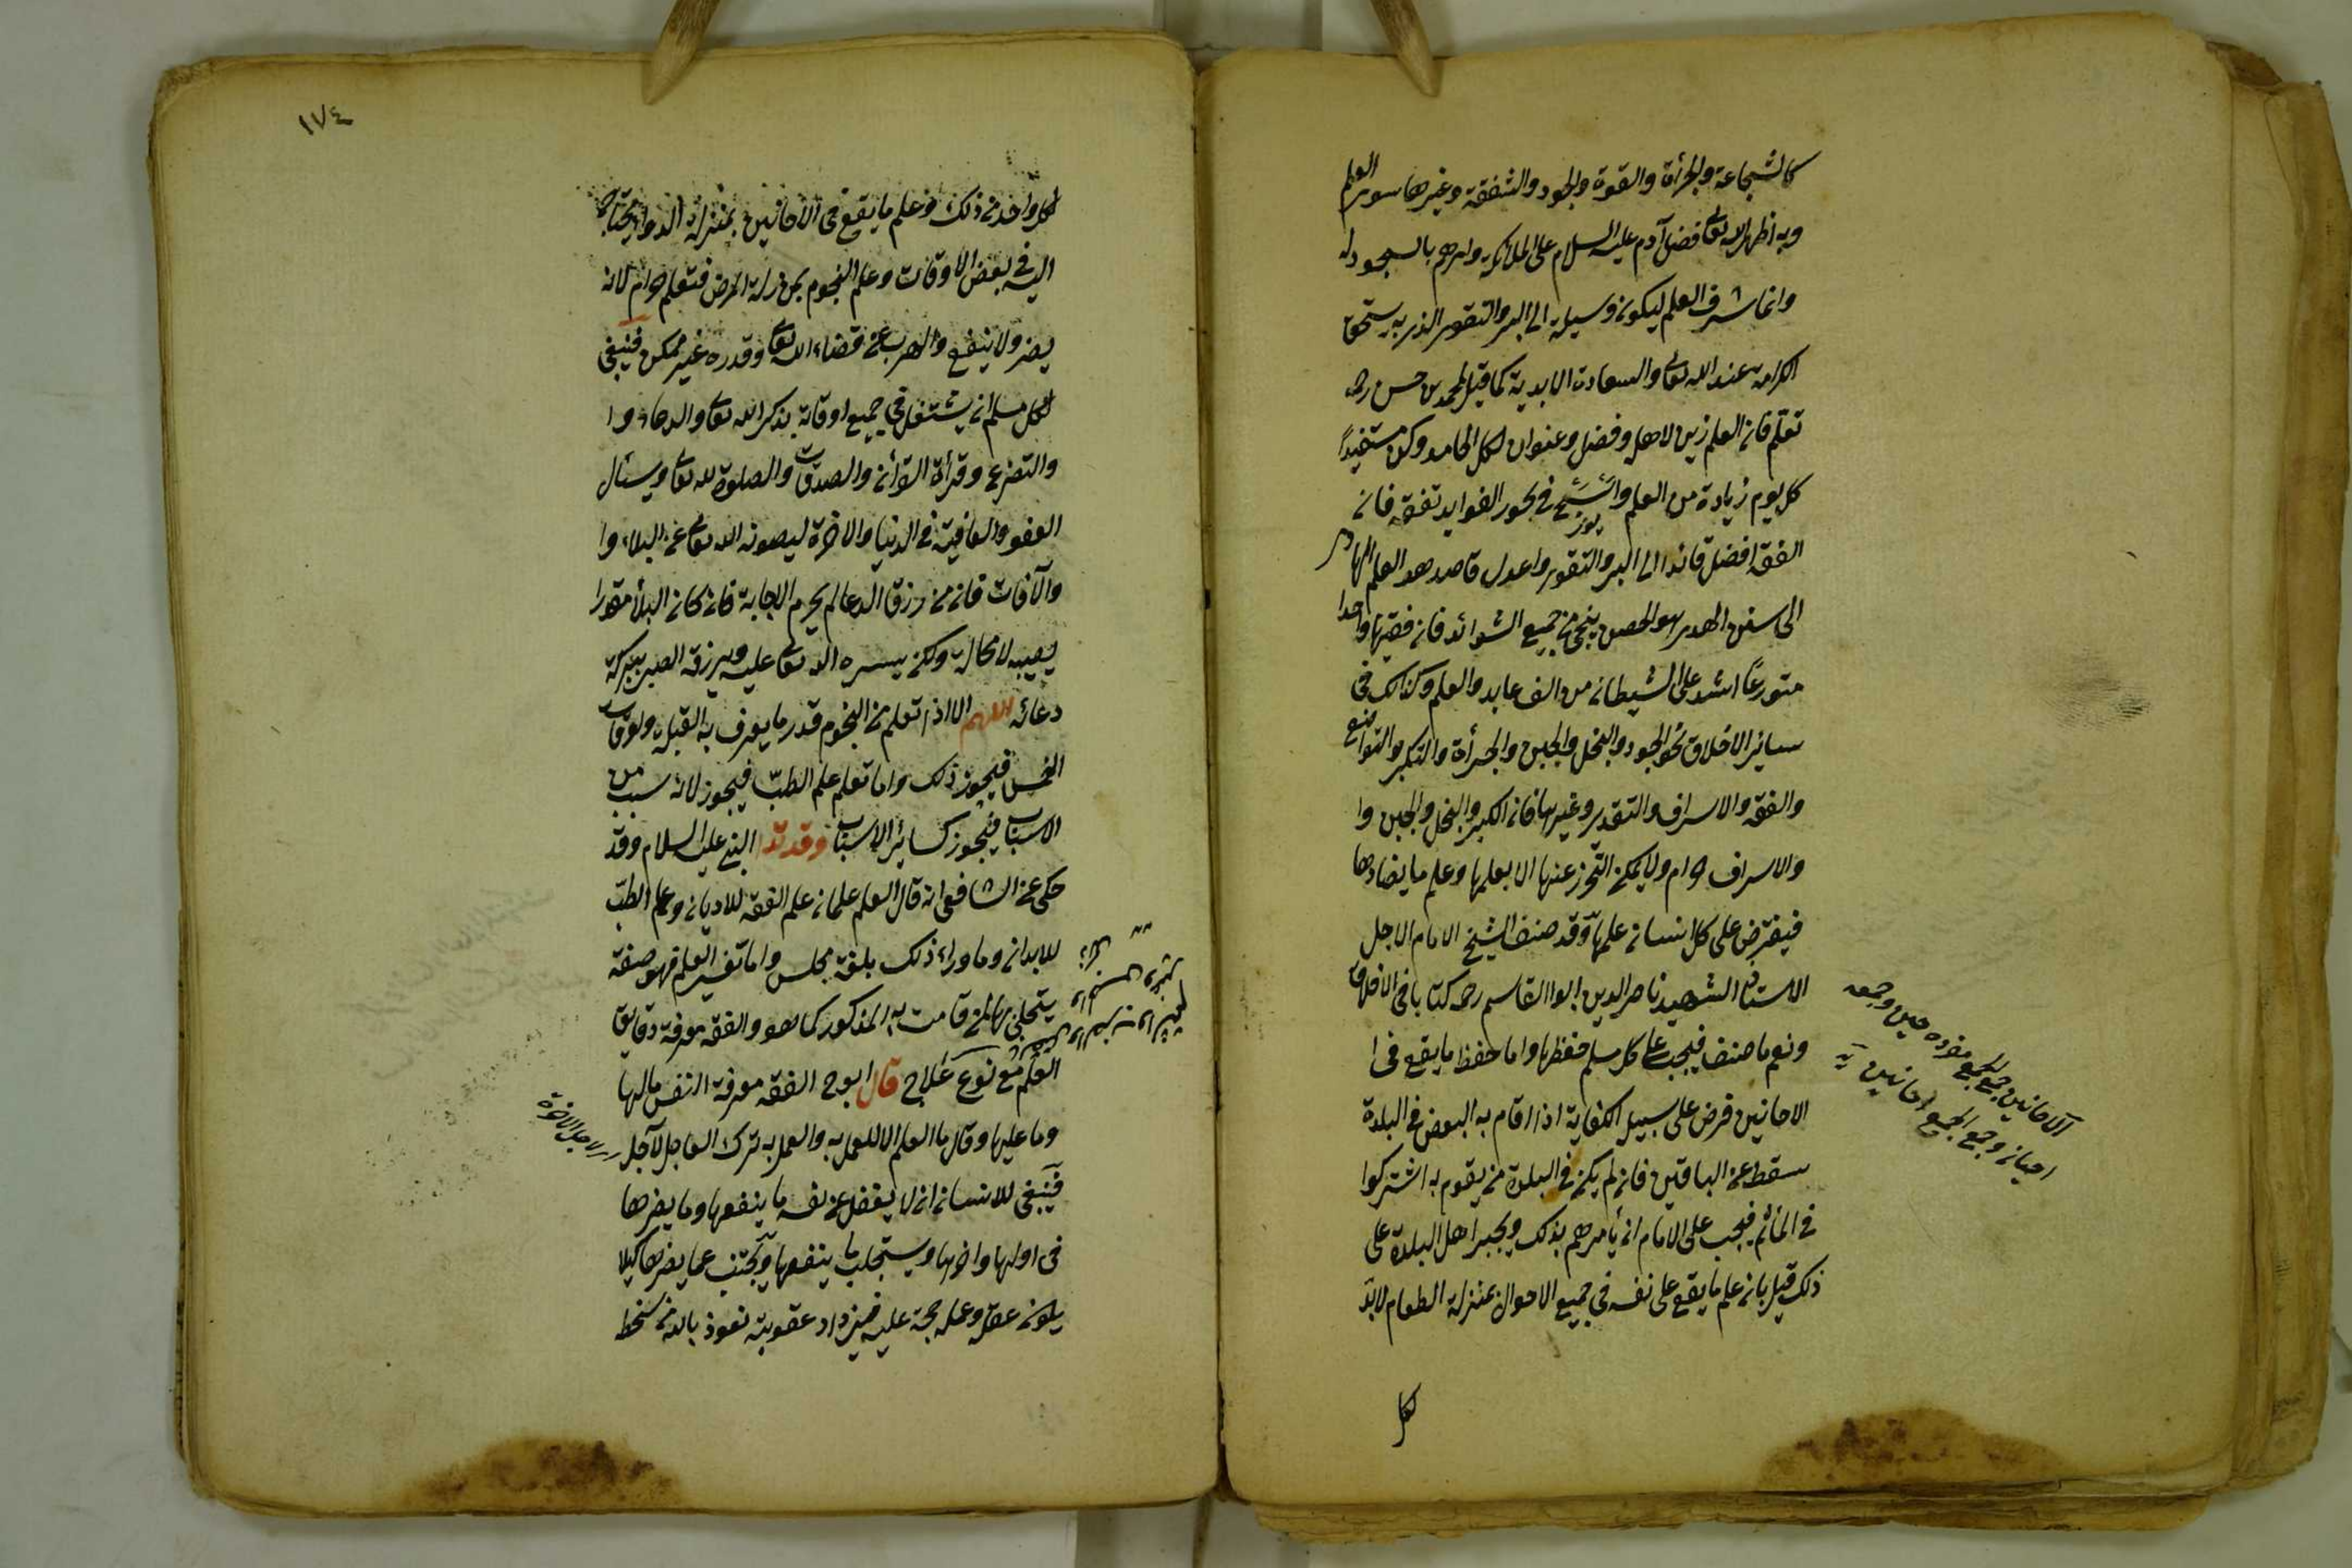 كالشجاعة والجرأة والقوة والجود والشفقة وغيرها سوى العلم
وبه اظهر الله تعالى فضل آدم عليه السلام على الملائكة وامرهم بالسجود له
وانما شرف العلم ليكونه وسيلة الى البر والتقوى الذى به يستحق
الكرامة عند الله تعالى والسعادة الابدية كما قيل لمحمد بن حسن رحه
تعلم فان العلم زين لاهله وفضل وعنوان لكل المحامد وكن مستفيدًا
كل يوم زيادة من العلم واسبح فى بحور الفوايد تفقه فان
يوز
الفقه افضل قائد الى البر والتقوى واعدل قاصد هو العلم الهادى
الى سنن الهدى هو الحصن ينجى من جميع الشدائد فان فقيها واحدا
متورعًا اشد على الشيطان من الف عابد والعلم وكذلك فى
سائر الاخلاق نحو الجود والبخل والجبن والجرأة والتكبر والتواضع
والفقه والاسراف والتقدير وغيرها فان الكبر والبخل والجبن وا
والاسراف حرام ولا يمكن التحرز عنها الا بعلمها وعلم ما يضادها
فيفترض على كل انسان علمها وقد صنف الشيخ الامام الاجل
الاستاد الشهيد ناصر الدين ابوا القاسم رحه كتابا فى الاخلاق
ونعم ما صنف فيجب على كل مسلم حفظها واما حفظ ما يقع فى ا
الاحانين فرض على سبيل الكفاية اذا اقام به البعض فى البلدة
سقط عن الباقين فان لم يكن فى البلدة من يقوم به اشتركوا
فى المأثم فيجب على الامام ان يأمرهم بذلك ويجبر اهل البلدة على
ذلك قيل بان علم ما يقع على نفسه فى جميع الاحوال بمنزلة الطعام لابد
لكل
الاحانين جمع الجمع مفرده حين وجمعه
احيان وجمع الجمع احانين
١٧٤
لكل واحد من ذلك وعلم ما يقع فى الاحانين بمنزلة الدواء يحتاج
اليه فى بعض الاوقات وعلم النجوم بمنزلة المرض فتعلمه حرام لانه
يضر ولا ينفع والهرب عن قضاء الله تعالى وقدره غير ممكن فينبغى
لكل مسلم ان يشتغل فى جميع اوقاته بذكر الله تعالى والدعاء وا
والتضرع وقرأة القرأن والصدقات والصلوة لله تعالى ويسئال
العفو والعافية فى الدنيا والاخرة ليصونه الله تعالى عن البلاء وا
والآفات فان من رزق الدعا لم يحرم الاجابة فان كان البلأ مقدرا
يصيبه لا محالة ولكن يسره الله تعالى عليه ويرزقه الصبر ببركة
دعائه اللهم الا اذا تعلم من النجوم قدر ما يعرف به القبلة واوقات
الخمس فيجوز ذلك واما تعلم علم الطب فيجوز لانه سبب من
الاسباب فيجوز كسائر الاسباب وقد تد النبى عليه السلام وقد
حكى عن الشافعى انه قال العلم علمان علم الفقه للاديان وعلم الطب
للابدان وما وراء ذلك بلغة مجلس واما تفسير العلم فهو صفة
يتجلى بها لمن قامت به المذكور كما هو والفقه معرفة دقايق
العلم مع نوع علاج قال ابو ح الفقه معرفة النفس ما لها
وما عليها وقال ما العلم الا للعمل به والعمل به ترك العاجل لآجل
فينبغى للانسان ان لا يغفل عن نفسه ما ينفعها وما يضرها
فى اولها واخرها ويستجلب ما ينفعها ويجتنب عما يضرها كيلا
يكون عقله وعمله حجة عليه فيزداد عقوبته نعوذ بالله من سخط
لاجل الاخرة